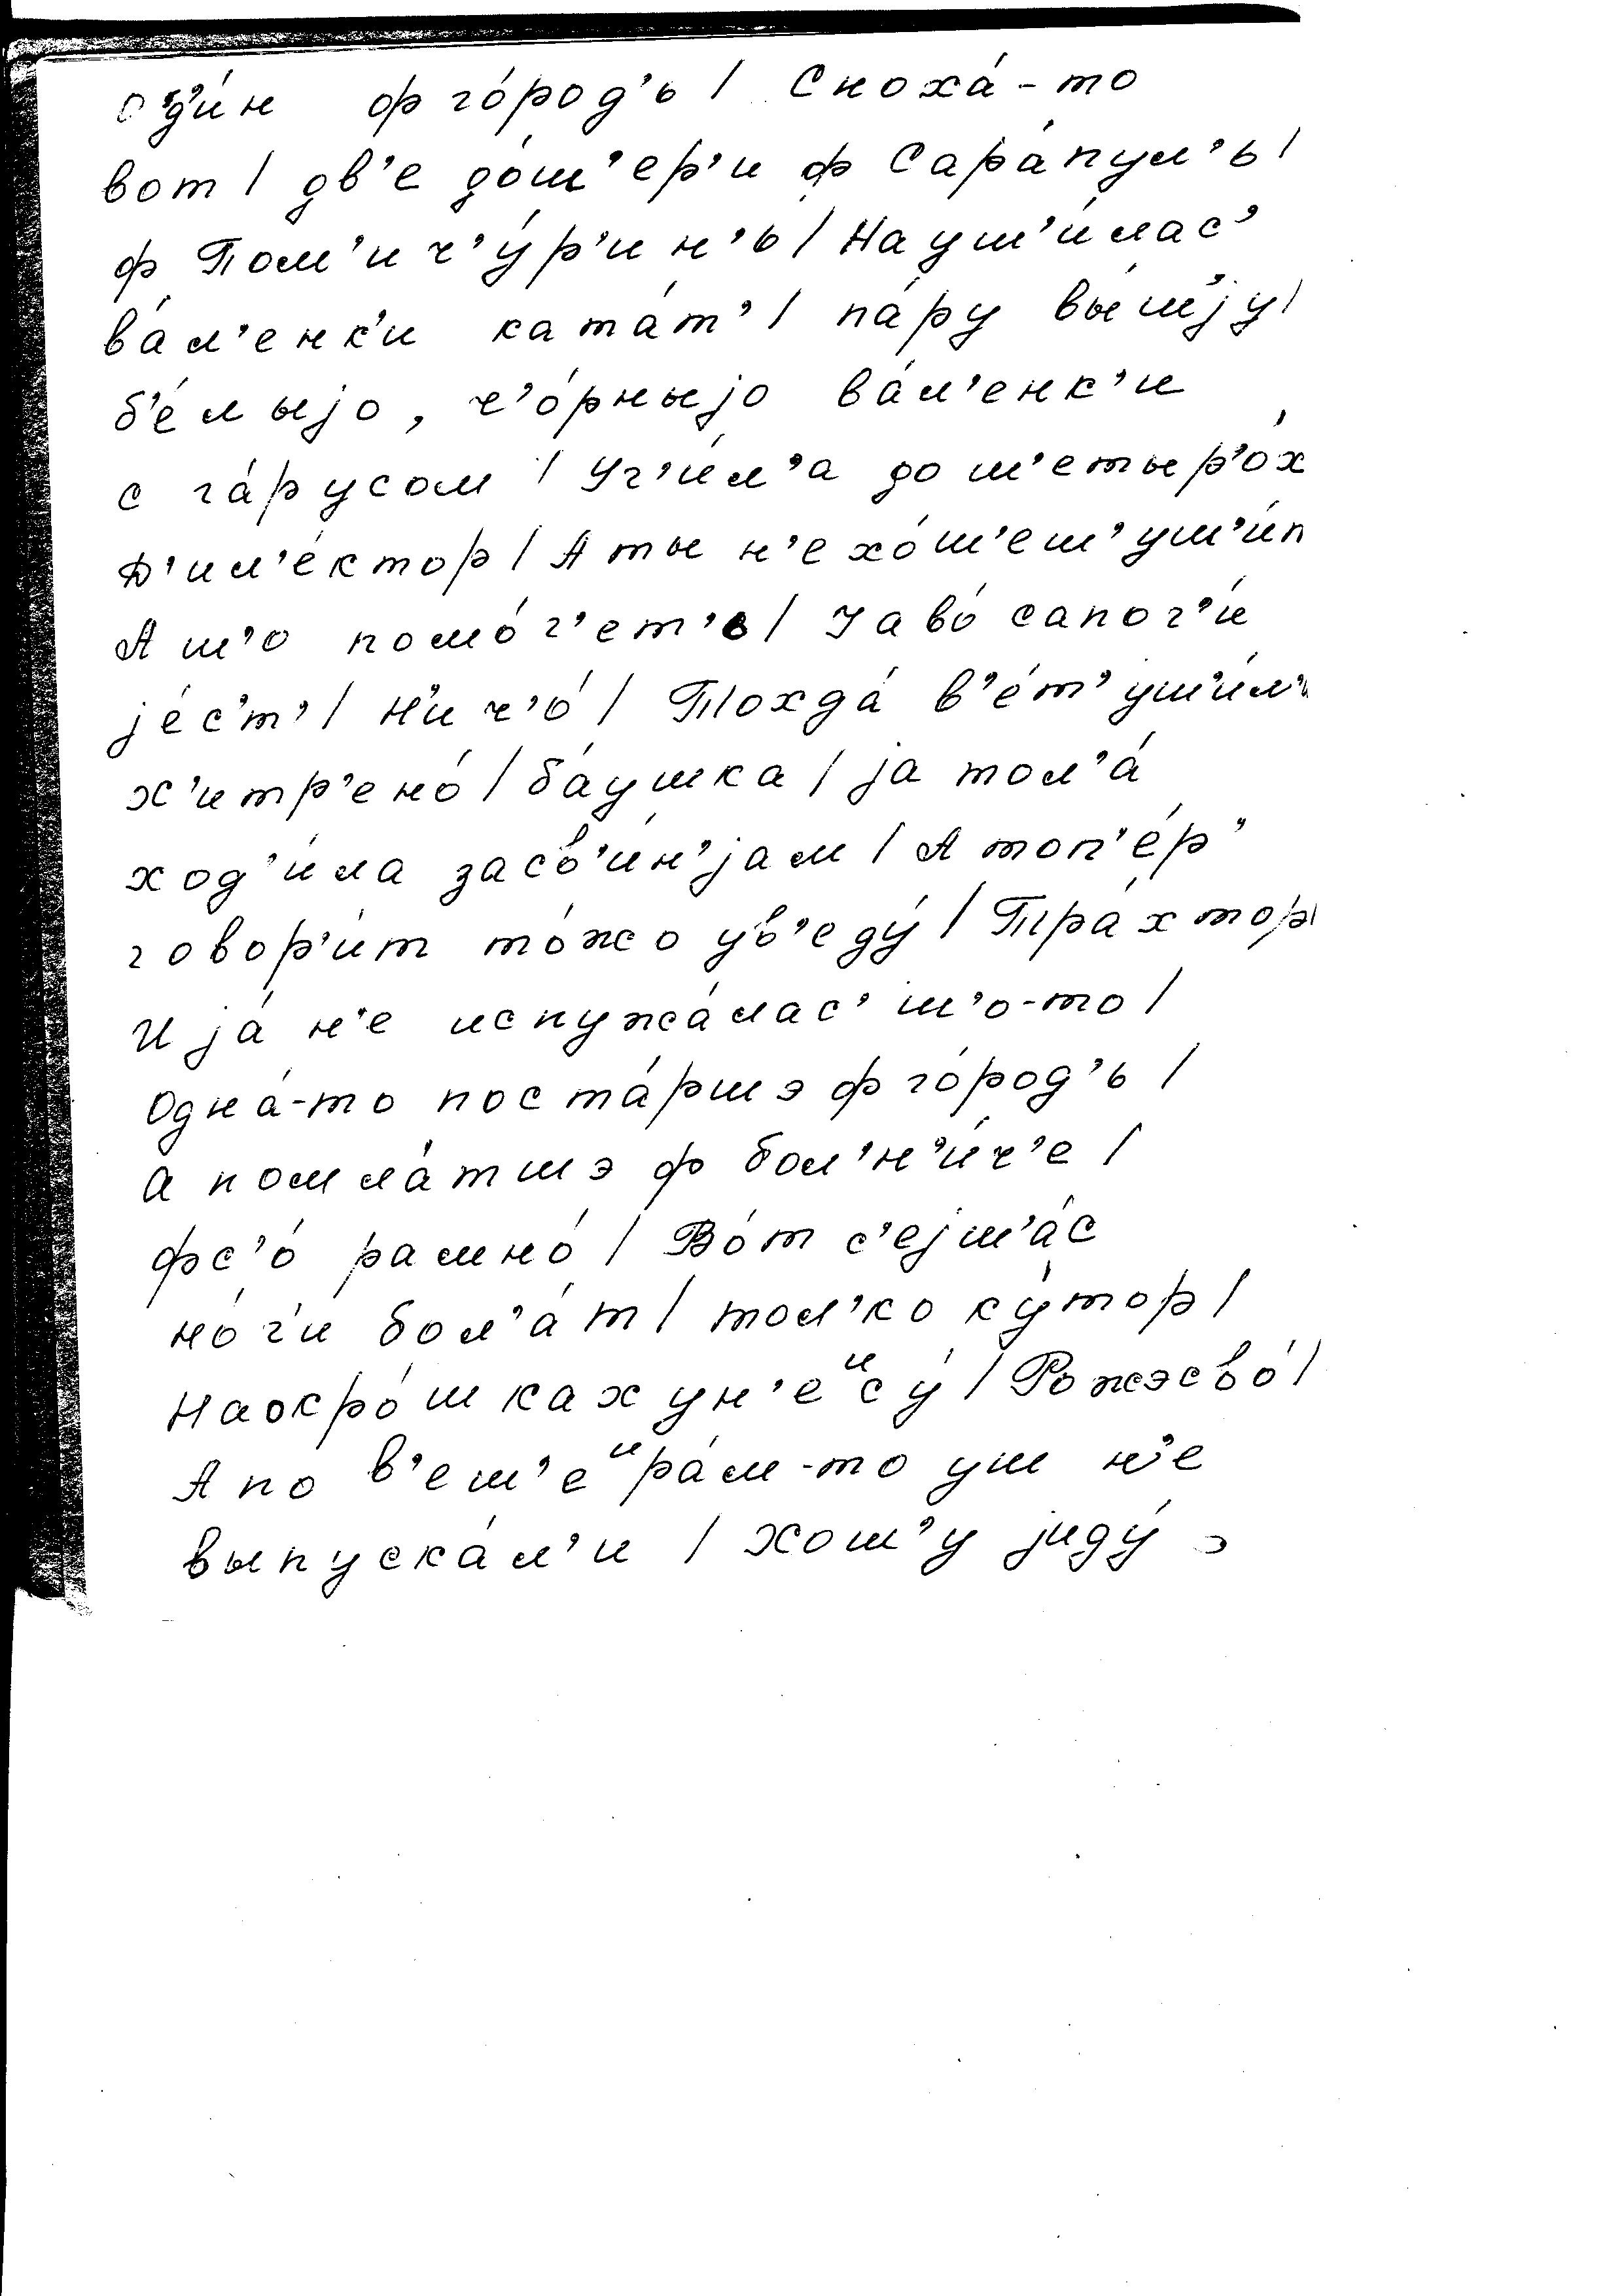 од'и́н ф го́род'ь / Сноха́-то
вот / дв'е до́ш'ер'и ф Сара́пул'ь /
ф Пом'ич'у́р'ин'ь / Науш'и́лас'
ва́л'енк'и ката́т' / па́ру вы́ш'jу /
б'е́лыjо, ч'о́рныjо ва́л'енк'и
с га́русом / Уч'и́л'а до ш'етыр'о́х
Д'ил'е́ктор / А ты н'е хо́ш'еш' уш'и́п
А ш'о помо́г'ет'ь / У аво́ сапог'и́
jе́с'т' / Н'ич'о́ / Тохда́ в'е́т' уш'и́л'и
х'итр'ено́ / ба́ушка / jа тол'а́
ход'и́ла засв'и́н'jам / А топ'е́р'
говор'и́т то́жо ув'еду́ / Тра́хтор /
И jа́ н'е испужа́лас' ш'о-то /
Одна́-то поста́ршэ ф го́род'ь /
а помла́тшэ ф бол'н'и́ч'е /
фс'о́ рамно́ / Во́т с'еjш'а́с
но́г'и бол'а́т / тол'ко ку́тор /
Наокро́шках ун'еᶦсу́ / Рожэсво́ /
А по в'еш'еᶦра́м-то уш н'е
выпуска́л'и / хош'у jиду́